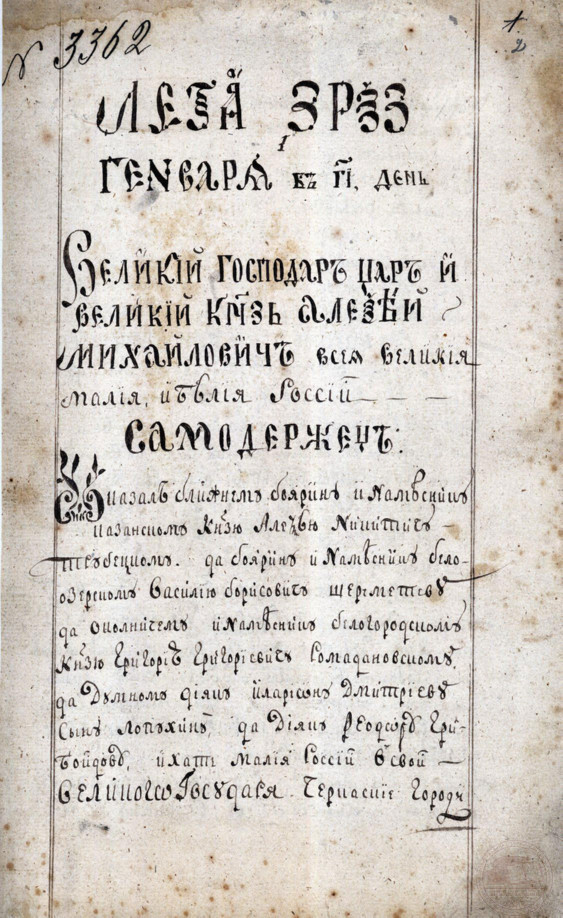 N 3362
1
2
ЛЕТА ЗРѮЗ
ГЕНВАРЯ въ ГІ, день
Великій господаръ царъ й
великій кнзь Алеѯѣй
Михайловйчъ всея великія
малія, и бѣлія Россій
самодержецъ:
Указалъ ближнему боярину и Намѣснику
казанскому Кнзю Алеѯѣю Никитичу
Трубецкому. да боярину и Намѣснику бело-
озерскому Василію борисовичу шереметеву
да околничему и Намѣснику белогородскому
Кнзю Григорію Григоріевичу Ромадановскому,
да Думному діяку иларіону Дмитріеву
Сыну лопухину, да Діяку Ѳеодору Гри-
боидову, ихати малія Россій в свой
великого Государя. Черкаскіе Городы